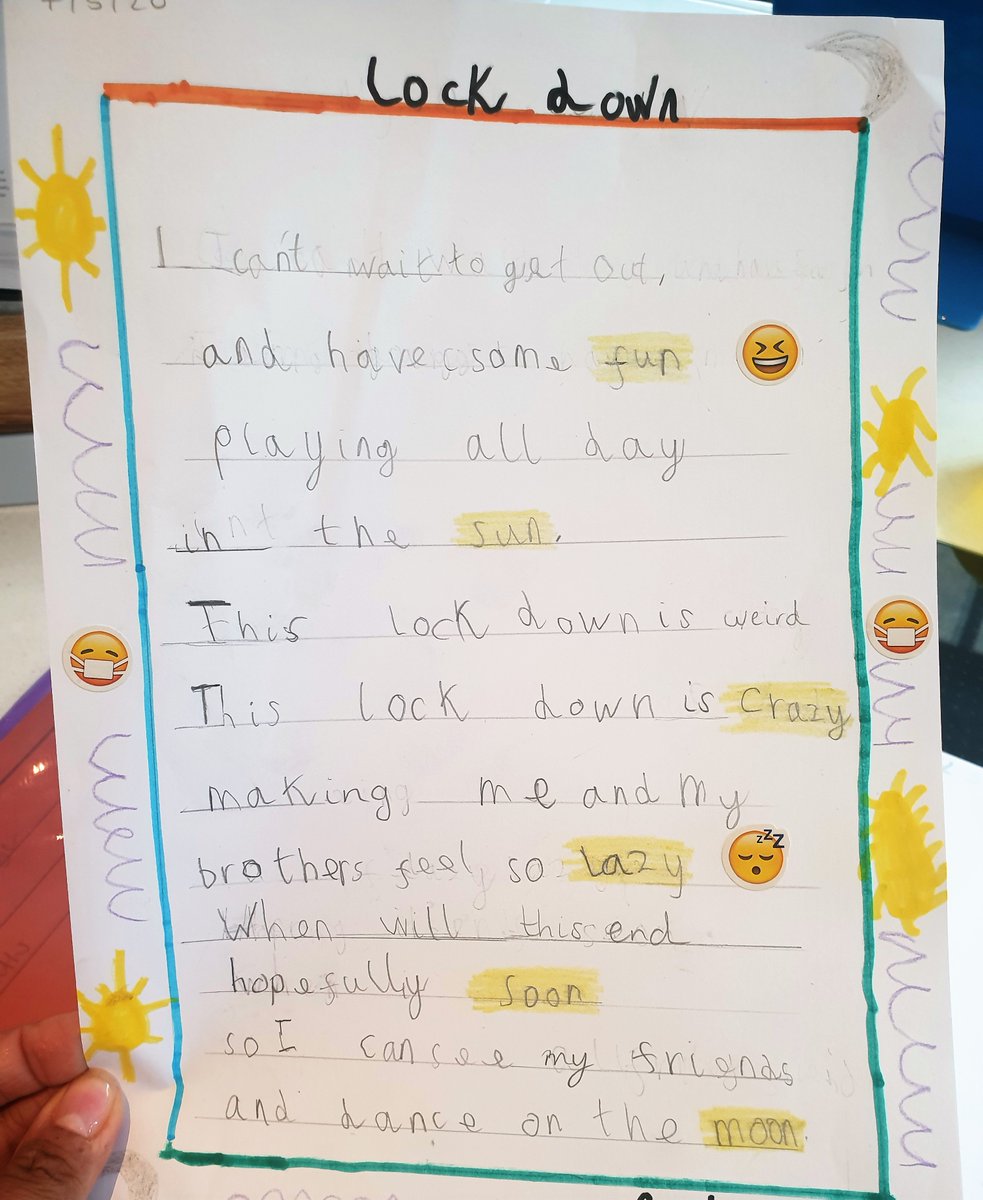 Lock down
I can't wait to get out,
and have some fun
playing all day
in the sun.
This lock down is weird
This lock down is crazy
making me and my
brothers feel so lazy
When will this end
hopefully soon
so I can see my friends
and dance on the moon.